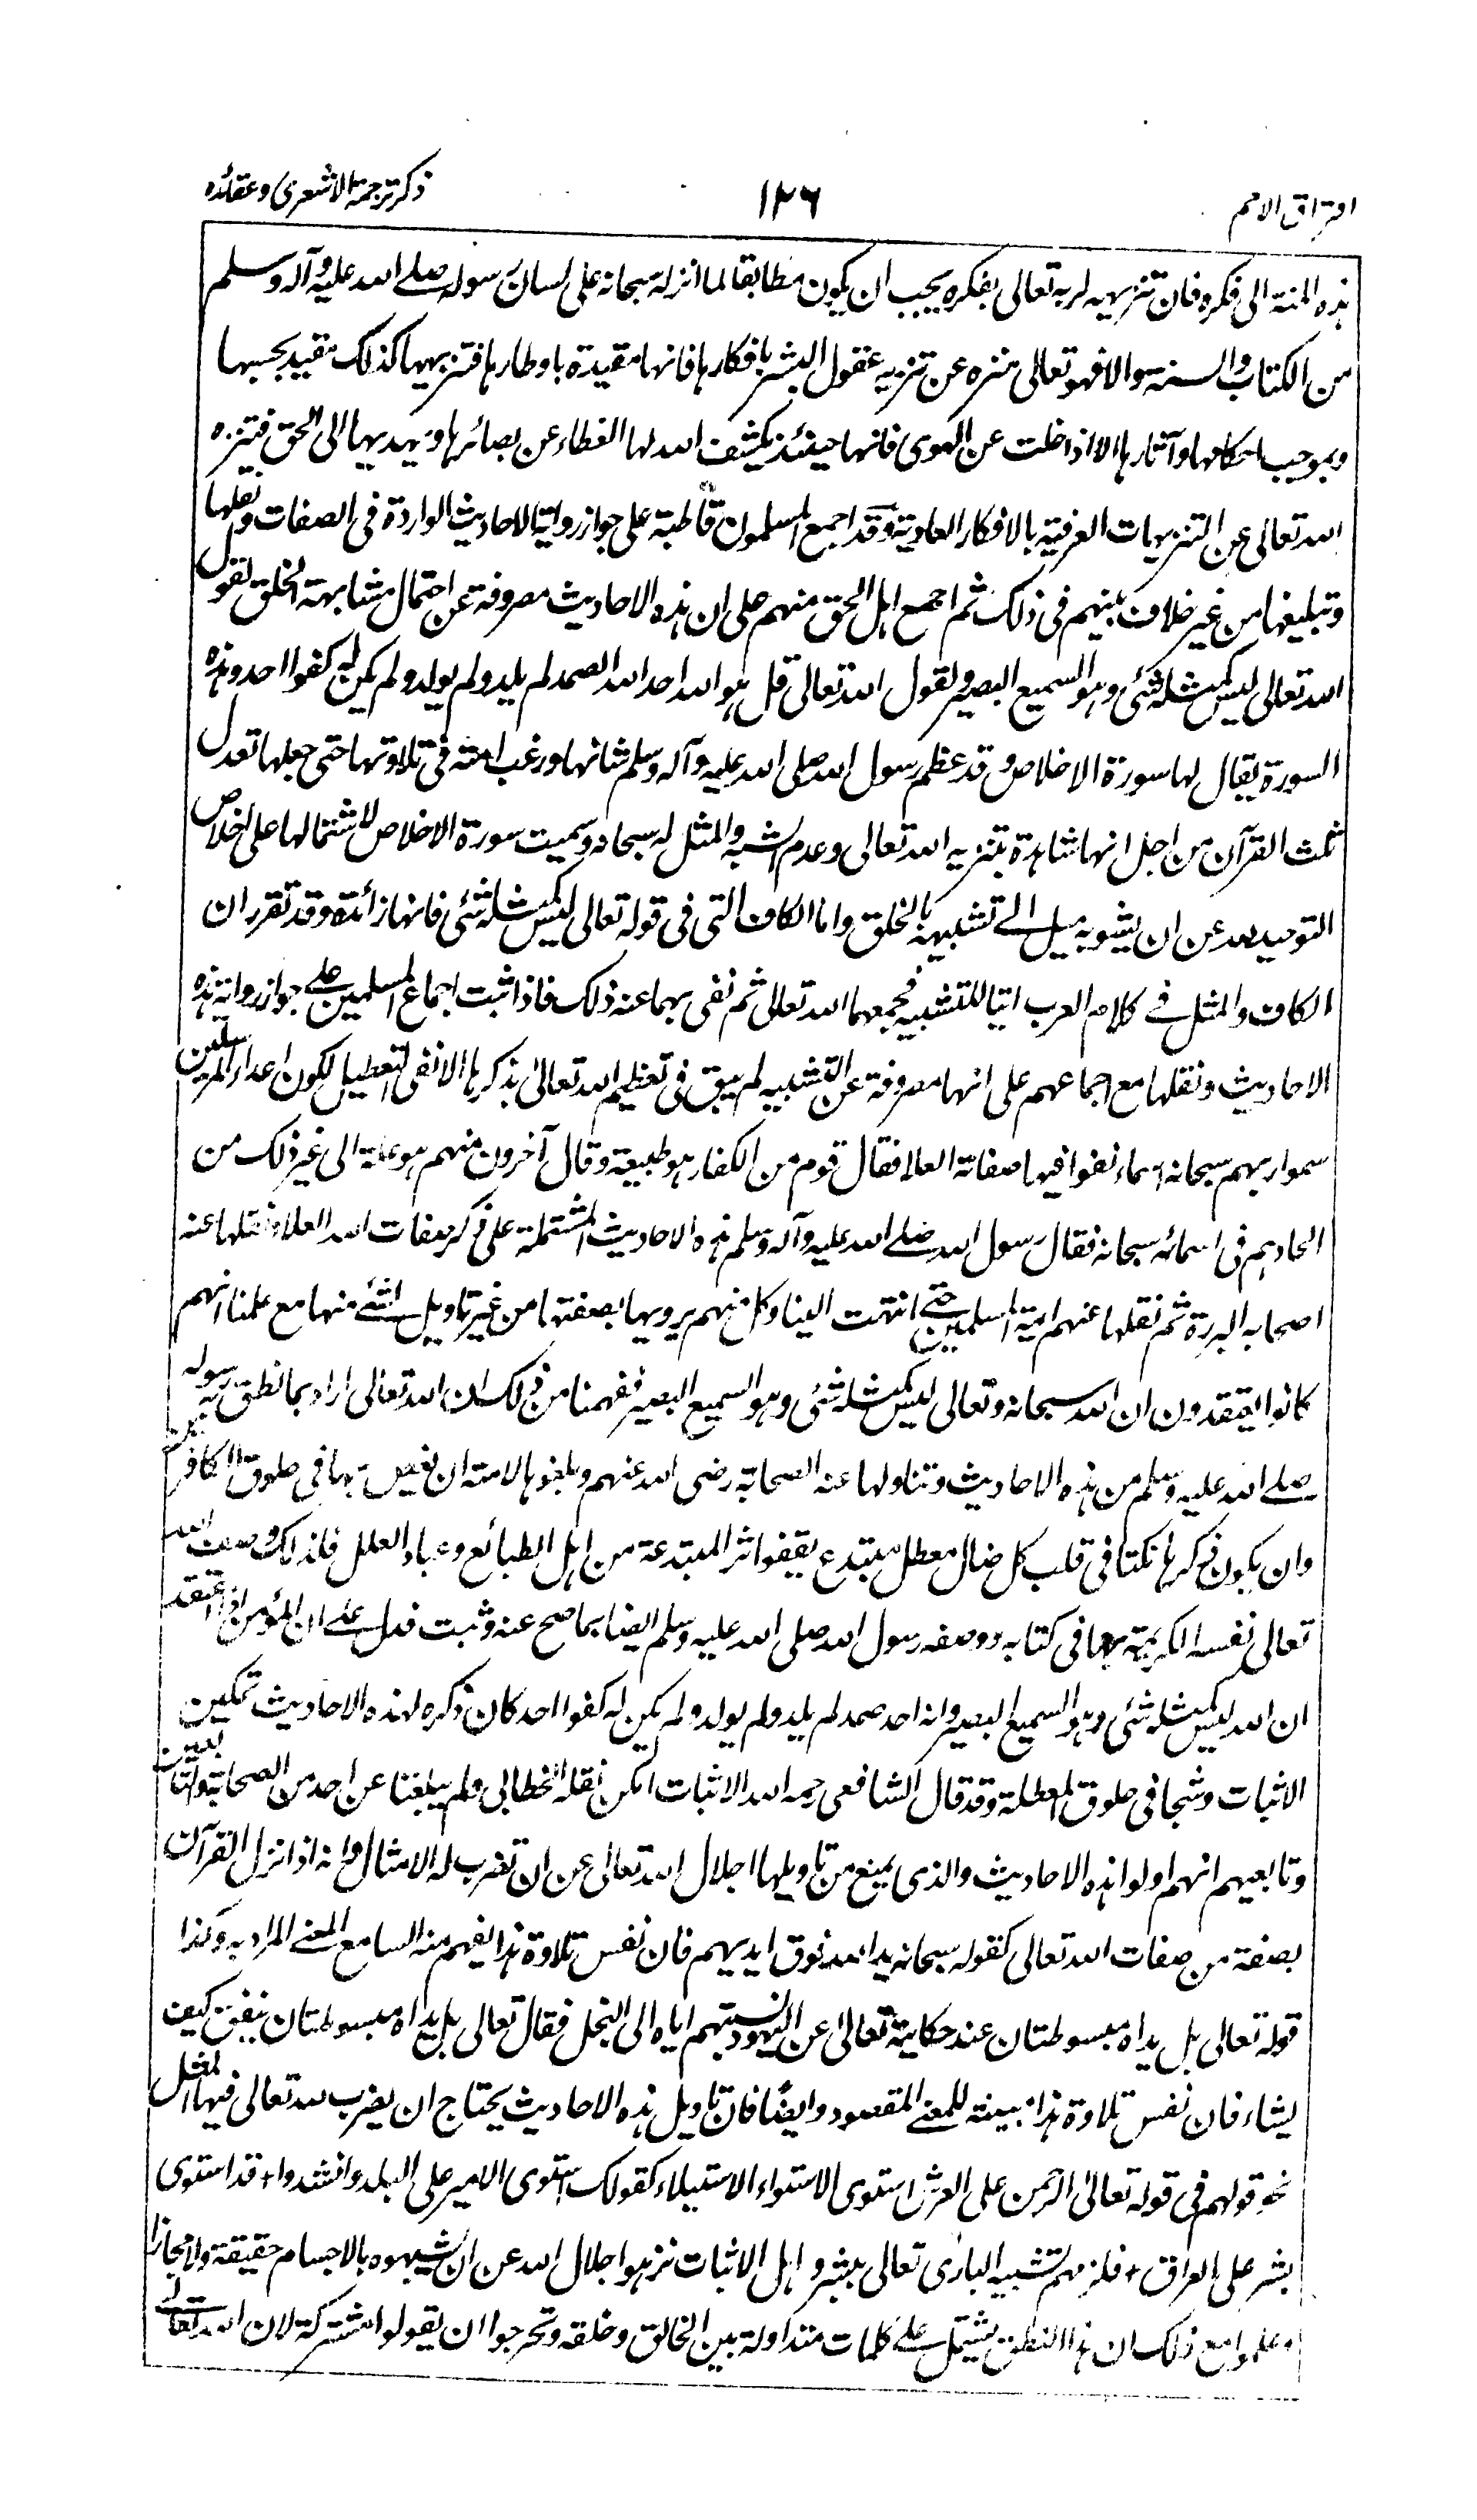 افتراق الامم
١٢٦
ذكر ترجمة الاشعرى وعقائده
هذه المنة الى فكره فان تنزيهه لربه تعالى بفكره يجب ان يكون مطابقا لما انزله سبحانه على لسان رسوله صلے الله عليه وآله وسلم
من الكتاب والسنة والا فهو تعالى منزه عن تنزيه عقول البشر بافكارها فانها مقيدة باوطارها فتنزيهها كذلك مقيد بحسبها
وبموجب احكامها وآثارها الا اذا خلت عن الهوى فانها حينئذ يكشف الله لها الغطاء عن بصائرها ويهديها الى الحق فتنزه
الله تعالى عن التنزيهات العرفية بالافكار العادية وقد اجمع المسلمون قاطبة على جواز رواية الاحاديث الواردة فى الصفات ونقلها
وتبليغها من غير خلاف بينهم فى ذلك ثم اجمع اهل الحق منهم على ان هذه الاحاديث مصروفة عن احتمال مشابهة الخلق لقول
الله تعالى ليس كمثله شئ وهو السميع البصير ولقول الله تعالى قل هو الله احد الله الصمد لم يلد ولم يولد ولم يكن له كفوا احد وهذه
السورة يقال لها سورة الاخلاص وقد عظم رسول الله صلى الله عليه وآله وسلم شانها ورغب امته فى تلاوتها حتى جعلها تعدل
ثلث القرآن من اجل انها شاهدة بتنزيه الله تعالى وعدم الشبه والمثل له سبحانه وسميت سورة الاخلاص لاشتمالها على اخلاص
التوحيد لله عن ان يشوبه ميل الے تشبيهه بالخلق واما الكاف التى فى قوله تعالى ليس كمثله شئ فانها زائدة وقد تقرر ان
الكاف والمثل فے كلام العرب اتيا للتشبيه فجمعهما الله تعالى ثم نفى بهما عنه ذلك فاذا ثبت اجماع المسلمين علے جواز رواية هذه
الاحاديث ونقلها مع اجماعهم على انها مصروفة عن التشبيه لم يبق فى تعظيم الله تعالى بذكرها الا نفى التعطيل لكون اعداء المرسلين
سموا ربهم سبحانه اسماء نفوا فيها صفاته العلا فقال قوم من الكفار هو طبيعة وقال آخرون منهم هو علة الى غير ذلك من
الحادهم فى اسمائه سبحانه فقال رسول الله صلے الله عليه وآله وسلم هذه الاحاديث المشتملة على ذكر صفات الله العلا ونقلها عنه
اصحابه البررة ثم نقلها عنهم ائمة المسلمين حتى انتهت الينا وكل منهم يرويها بصفتها من غير تاويل لشئ منها مع علمنا انهم
كانوا يعتقدون ان الله سبحانه وتعالى ليس كمثله شئ وهو السميع البصير ففهمنا من ذلك ان الله تعالى اراد بما نطق به رسوله
صلے الله عليه وسلم من هذه الاحاديث وتناولها عنه الصحابة رضى الله عنهم وبلغوها لامته ان يغص بها فى حلوق الكافرين
وان يكون ذكرها نكتا فى قلب كل ضال معطل مبتدع يقفو اثر المبتدعة من اهل الطبائع وعباد العلل فلذلك وصف الله
تعالى نفسه الكريمة بها فى كتابه ووصفه رسول الله صلى الله عليه وسلم ايضا بما صح عنه وثبت فدل علے ان المؤمن اذا اعتقد
ان الله ليس كمثله شئ وهو السميع البصير وانه احد صمد لم يلد ولم يولد ولم يكن له كفوا احد كان ذكره لهذه الاحاديث تمكين
الاثبات وشجا فى حلوق المعطلة وقد قال الشافعى رحمه الله الاثبات امكن نقله الخطابى ولم يبلغنا عن احد من الصحابة والتابعين
وتابعيهم انهم اولوا هذه الاحاديث والذى يمنع من تاويلها اجلال الله تعالى عن ان تضرب له الامثال وانه اذا نزل القرآن
بصفة من صفات الله تعالى كقوله سبحانه يد الله فوق ايديهم فان نفس تلاوة هذا يفهم منه السامع المعنے المراد به وكذا
قوله تعالى بل يداه مبسوطتان عند حكايته تعالى عن اليهود نسبتهم اياه الى البخل فقال تعالى بل يداه مبسوطتان ينفق كيف
يشاء فان نفس تلاوة هذا مبينة للمعنے المقصود وايضا فان تاويل هذه الاحاديث يحتاج ان يضرب لله تعالى فيها المثل
نحو قولهم فى قوله تعالى الرحمن على العرش استوى الاستواء الاستيلاء كقولك استوى الامير على البلد وانشدوا + قد استوى
بشر على العراق + فلزمهم تشبيه البارى تعالى ببشر واهل الاثبات نزهوا جلال الله عن ان يشبهوه بالاجسام حقيقة ولا مجازا
وعلموا مع ذلك ان هذا النطق يشتمل علے كلمات متداولة بين الخالق وخلقه وتحرجوا ان يقولوا مشتركة لان الله تعالى